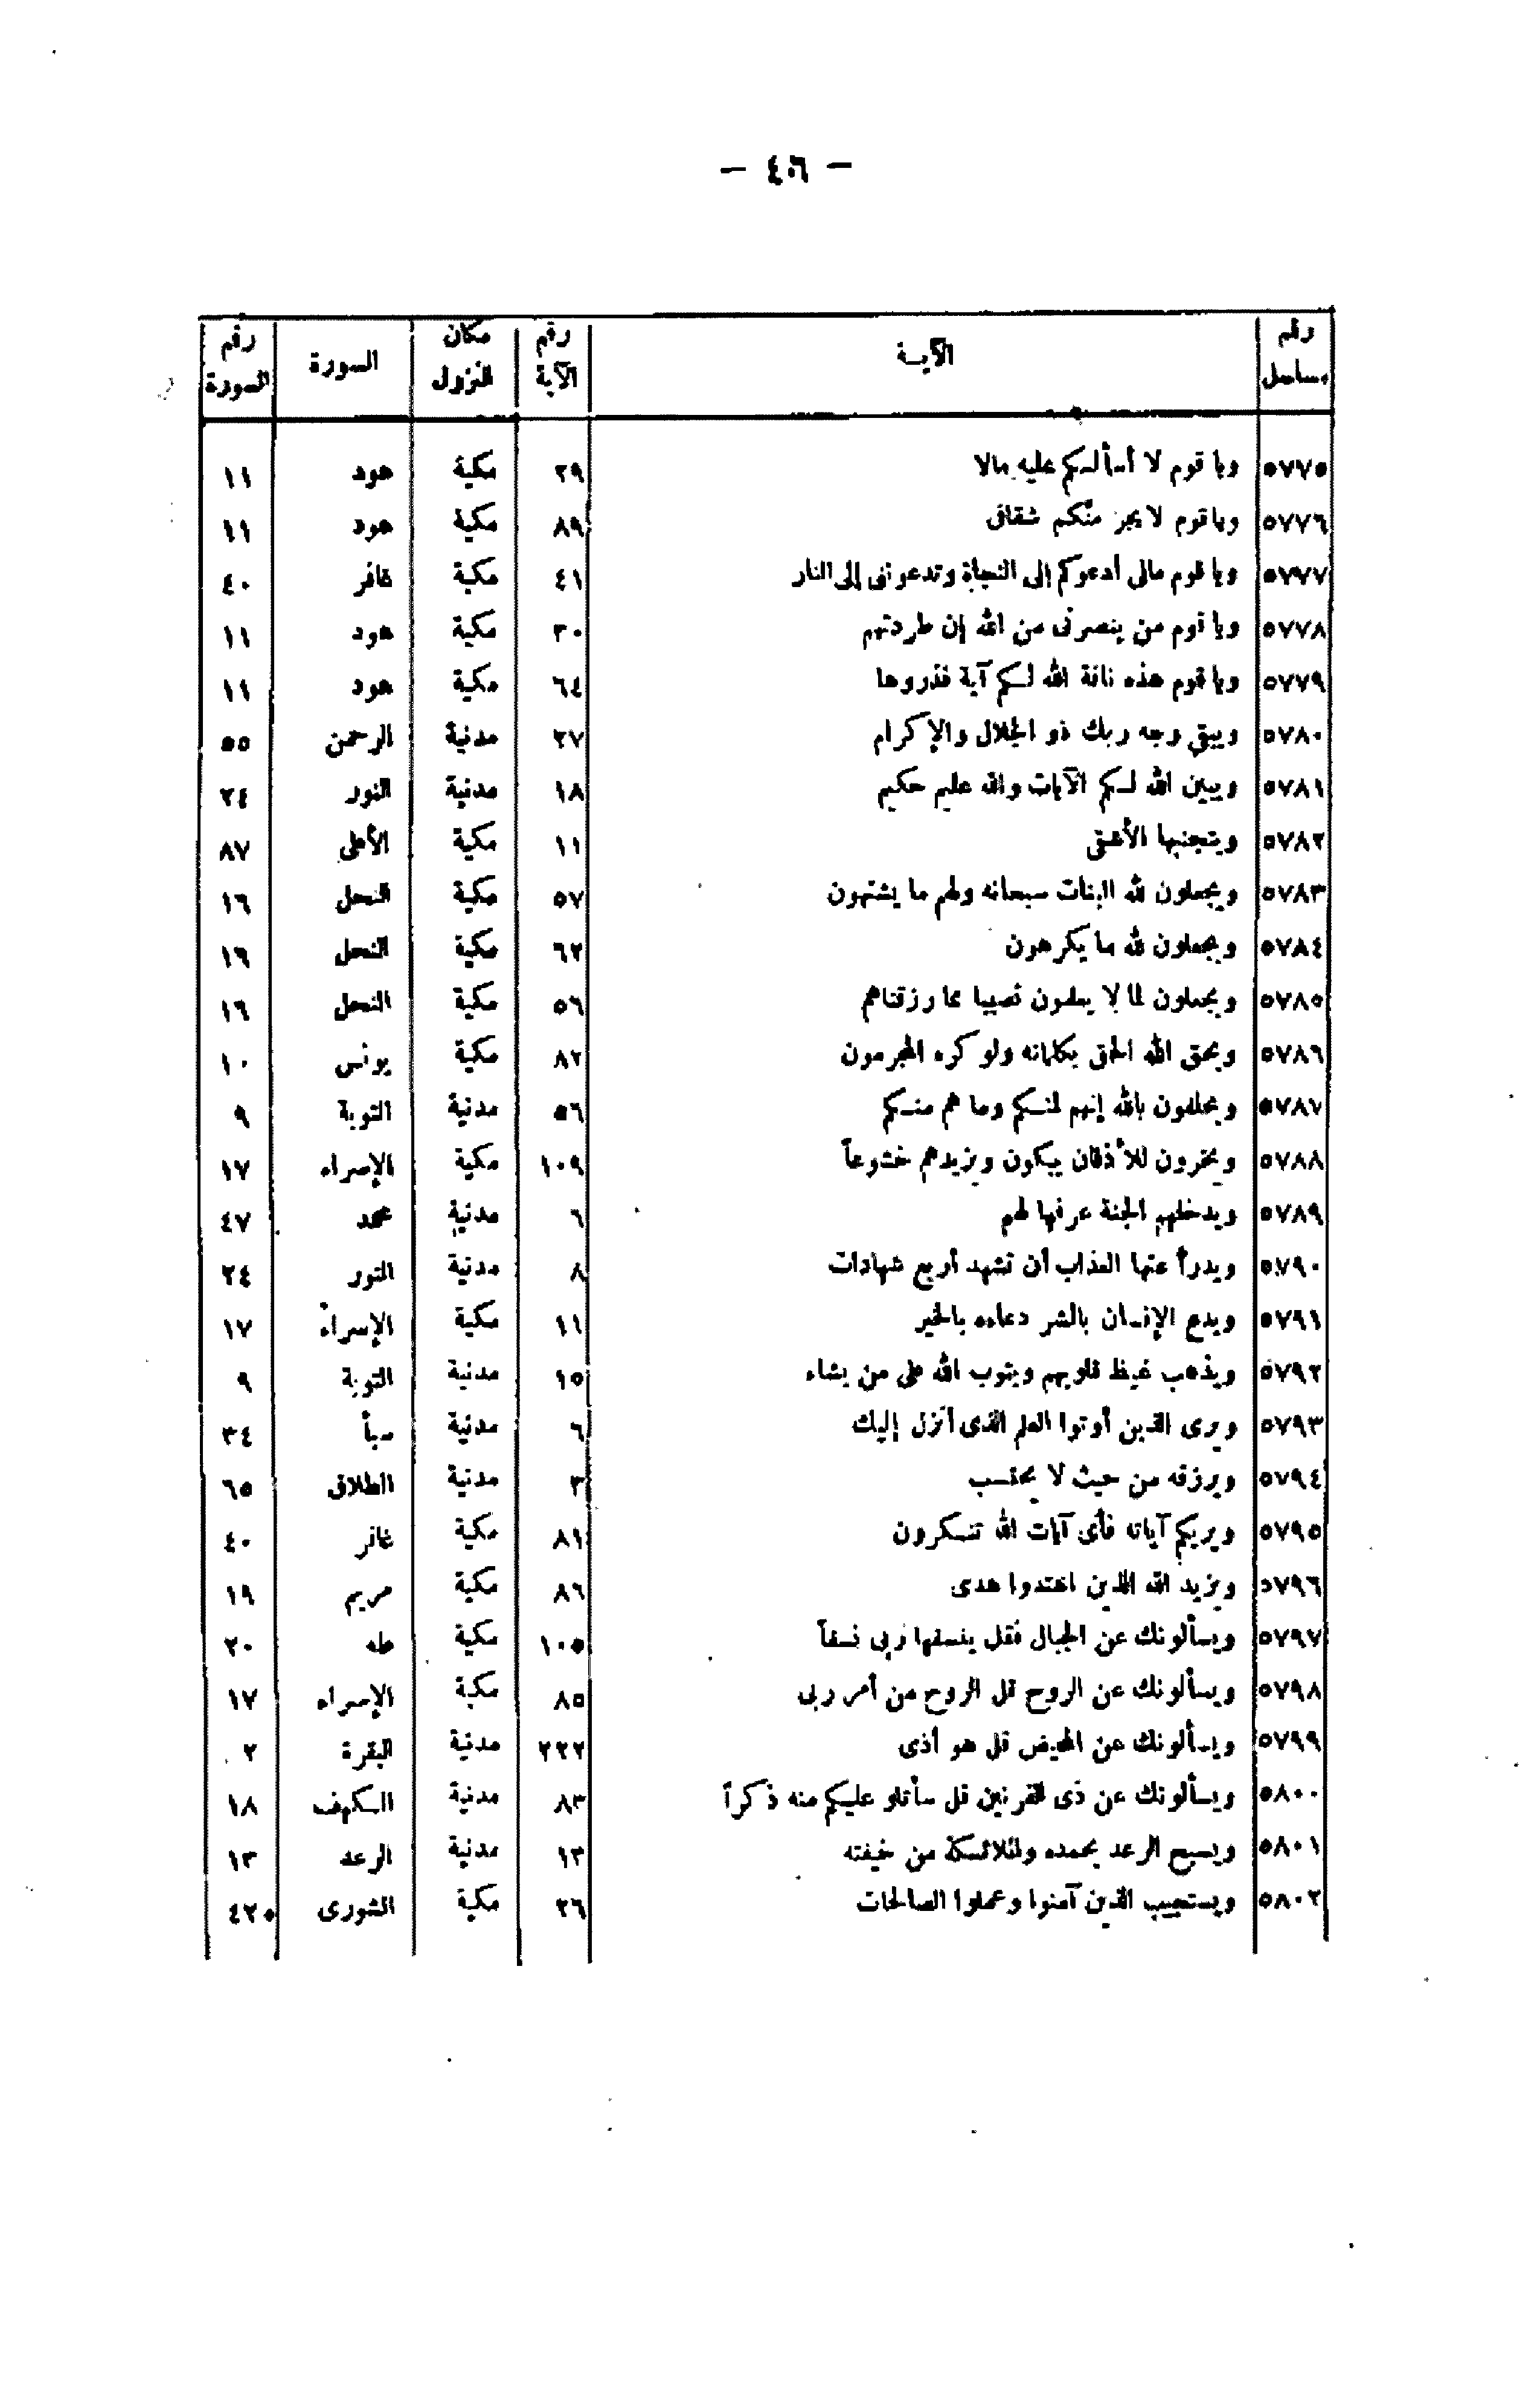 — ٤٦ —
رقم مسلسل | الآيـة | رقم الآية | مكان النزول | السورة | رقم السورة
٥٧٧٥ | ويا قوم لا أسألـكم عليه مالا | ٢٩ | مكية | هود | ١١
٥٧٧٦ | وياقوم لايجر منّكم شقاقى | ٨٩ | مكية | هود | ١١
٥٧٧٧ | ويا قوم مالى أدعوكم إلى النجاة وتدعوننى إلى النار | ٤١ | مكية | غافر | ٤٠
٥٧٧٨ | ويا قوم من ينصرنى من الله إن طردتهم | ٣٠ | مكية | هود | ١١
٥٧٧٩ | ويا قوم هذه ناقة الله لـكم آية فذروها | ٦٤ | مكية | هود | ١١
٥٧٨٠ | ويبقى وجه ربك ذو الجلال والإكرام | ٢٧ | مدنية | الرحمن | ٥٥
٥٧٨١ | ويبين الله لـكم الآيات والله عليم حكيم | ١٨ | مدنية | النور | ٢٤
٥٧٨٢ | ويتجنبها الأشقى | ١١ | مكية | الأعلى | ٨٧
٥٧٨٣ | ويجعلون لله البنات سبحانه ولهم ما يشتهون | ٥٧ | مكية | النحل | ١٦
٥٧٨٤ | ويجعلون لله ما يكرهون | ٦٢ | مكية | النحل | ١٦
٥٧٨٥ | ويجعلون لما لا يعلمون نصيبا مما رزقناهم | ٥٦ | مكية | النحل | ١٦
٥٧٨٦ | ويحق الله الحق بكلماته ولو كره المجرمون | ٨٢ | مكية | يونس | ١٠
٥٧٨٧ | ويحلفون بالله إنهم لمنـكم وما هم منـكم | ٥٦ | مدنية | التوبة | ٩
٥٧٨٨ | ويخرون للأذقان يبكون ويزيدهم خشوعاً | ١٠٩ | مكية | الإسراء | ١٧
٥٧٨٩ | ويدخلهم الجنة عرفها لهم | ٦ | مدنية | محمد | ٤٧
٥٧٩٠ | ويدرأ عنها العذاب أن تشهد أربع شهادات | ٨ | مدنية | النور | ٢٤
٥٧٩١ | ويدع الإنسان بالشر دعاءه بالخير | ١١ | مكية | الإسراء | ١٧
٥٧٩٢ | ويذهب غيظ قلوبهم ويتوب الله على من يشاء | ١٥ | مدنية | التوبة | ٩
٥٧٩٣ | ويرى الذين أوتوا العلم الذى أنزل إليك | ٦ | مدنية | سبأ | ٣٤
٥٧٩٤ | ويرزقه من حيث لا يحتسب | ٣ | مدنية | الطلاق | ٦٥
٥٧٩٥ | ويريكم آياته فأى آيات الله تنـكرون | ٨١ | مكية | غافر | ٤٠
٥٧٩٦ | ويزيد الله الذين اهتدوا هدى | ٨٦ | مكية | مريم | ١٩
٥٧٩٧ | ويسألونك عن الجبال فقل ينسفها ربى نسفاً | ١٠٥ | مكية | طه | ٢٠
٥٧٩٨ | ويسألونك عن الروح قل الروح من أمر ربى | ٨٥ | مكية | الإسراء | ١٧
٥٧٩٩ | ويسألونك عن المحيض قل هو أذى | ٢٢٢ | مدنية | البقرة | ٢
٥٨٠٠ | ويسألونك عن ذى القرنين قل سأتلو عليـكم منه ذكراً | ٨٣ | مدنية | الـكهف | ١٨
٥٨٠١ | ويسبح الرعد بحمده والملائـكة من خيفته | ١٣ | مدنية | الرعد | ١٣
٥٨٠٢ | ويستجيب الذين آمنوا وعملوا الصالحات | ٢٦ | مكية | الشورى | ٤٢